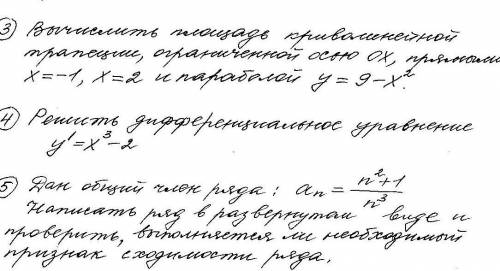 ③ Вычислить площадь криволинейной
трапеции, ограниченной осью OX, прямыми
x=-1, x=2 и параболой y = 9-x².
④ Решить дифференциальное уравнение
y' = x³-2
⑤ Дан общий член ряда: aₙ = n²+1/n³
Написать ряд в развернутом виде и
проверить, выполняется ли необходимый
признак сходимости ряда.